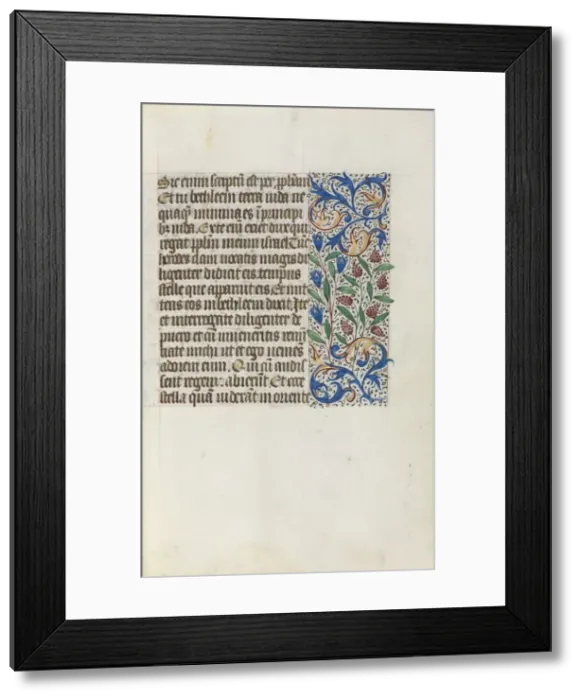 Sic enim scriptū est per prophetā
Et tu bethleem terra iuda ne
quaqȝ minima es ī principi
bȝ iuda. Ex te eni exiet dux qui
regat pplm meum israel. Tūc
herodes clam vocatis magis di
ligenter didicit ab eis tempus
stelle que apparuit eis. Et mit
tens eos in bethleem dixit. Ite
et interrogate diligenter de
puero et cū inueneritis renūt
iate michi ut et ego veniēs
adorem eum. Qui cū audis
sent regem: abierūt. Et ecce
stella quā viderāt in oriente